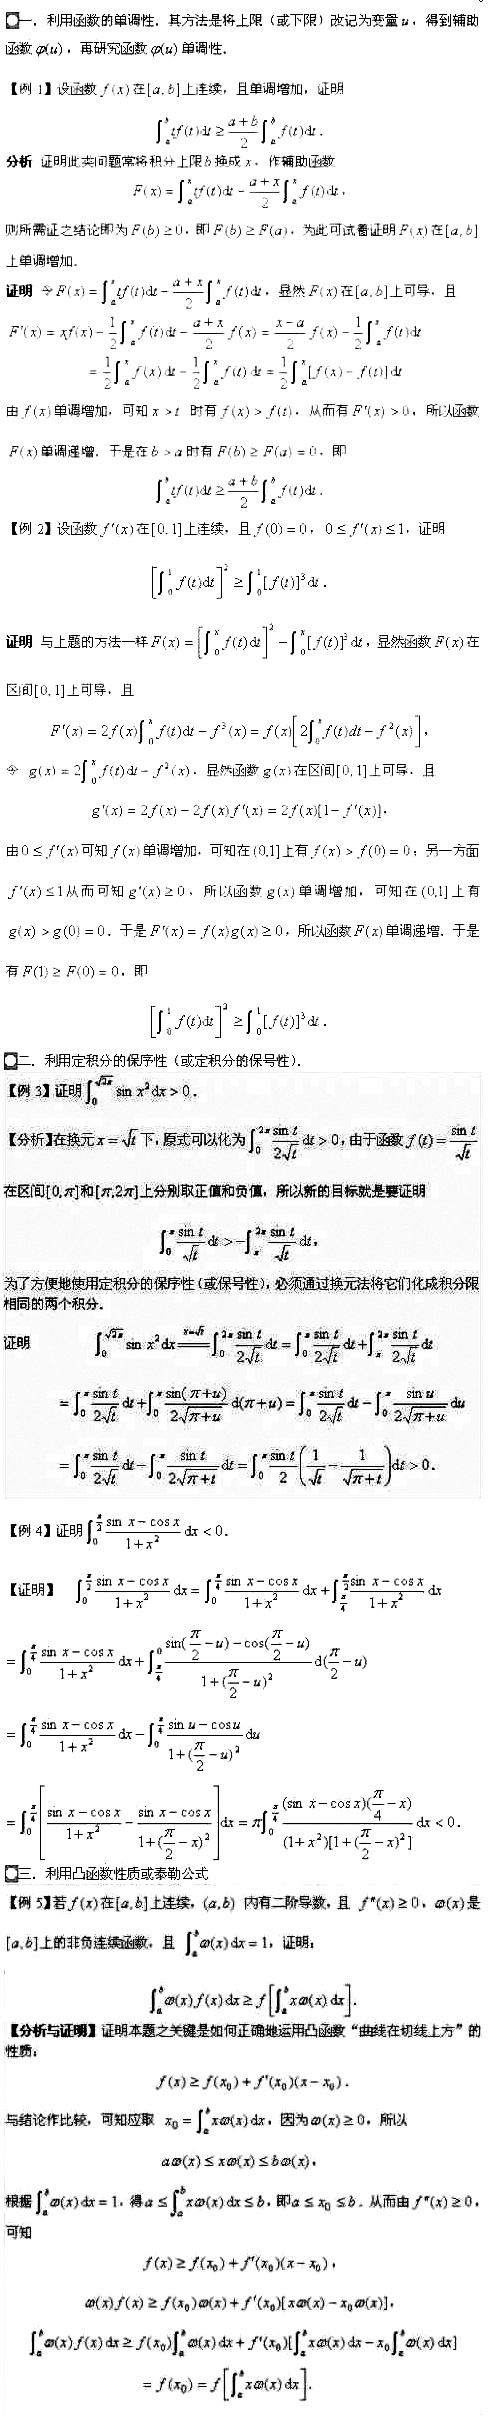 一．利用函数的单调性．其方法是将上限（或下限）改记为变量 u，得到辅助
函数 φ(u)，再研究函数 φ(u) 单调性．
【例 1】设函数 f(x) 在 [a,b] 上连续，且单调增加，证明
∫_a^b tf(t)dt ≥ (a+b)/2 ∫_a^b f(t)dt．
分析 证明此类问题常将积分上限 b 换成 x，作辅助函数
F(x) = ∫_a^x tf(t)dt − (a+x)/2 ∫_a^x f(t)dt，
则所需证之结论即为 F(b) ≥ 0，即 F(b) ≥ F(a)，为此可试着证明 F(x) 在 [a,b]
上单调增加．
证明 令 F(x) = ∫_a^x tf(t)dt − (a+x)/2 ∫_a^x f(t)dt，显然 F(x) 在 [a,b] 上可导，且
F'(x) = xf(x) − 1/2 ∫_a^x f(t)dt − (a+x)/2 f(x) = (x−a)/2 f(x) − 1/2 ∫_a^x f(t)dt
= 1/2 ∫_a^x f(x)dt − 1/2 ∫_a^x f(t)dt = 1/2 ∫_a^x [f(x) − f(t)]dt
由 f(x) 单调增加，可知 x > t 时有 f(x) > f(t)，从而有 F'(x) > 0，所以函数
F(x) 单调递增．于是在 b > a 时有 F(b) ≥ F(a) = 0，即
∫_a^b tf(t)dt ≥ (a+b)/2 ∫_a^b f(t)dt．
【例 2】设函数 f'(x) 在 [0,1] 上连续，且 f(0) = 0，0 ≤ f'(x) ≤ 1，证明
[∫_0^1 f(t)dt]^2 ≥ ∫_0^1 [f(t)]^3 dt．
证明 与上题的方法一样 F(x) = [∫_0^x f(t)dt]^2 − ∫_0^x [f(t)]^3 dt，显然函数 F(x) 在
区间 [0,1] 上可导，且
F'(x) = 2f(x)∫_0^x f(t)dt − f^3(x) = f(x)[2∫_0^x f(t)dt − f^2(x)]，
令 g(x) = 2∫_0^x f(t)dt − f^2(x)．显然函数 g(x) 在区间 [0,1] 上可导，且
g'(x) = 2f(x) − 2f(x)f'(x) = 2f(x)[1 − f'(x)]，
由 0 ≤ f'(x) 可知 f(x) 单调增加，可知在 (0,1] 上有 f(x) > f(0) = 0；另一方面
f'(x) ≤ 1 从而可知 g'(x) ≥ 0，所以函数 g(x) 单调增加，可知在 (0,1] 上有
g(x) > g(0) = 0．于是 F'(x) = f(x)g(x) ≥ 0，所以函数 F(x) 单调递增．于是
有 F(1) ≥ F(0) = 0，即
[∫_0^1 f(t)dt]^2 ≥ ∫_0^1 [f(t)]^3 dt．
二．利用定积分的保序性（或定积分的保号性）．
【例 3】证明 ∫_0^√(2π) sin x^2 dx > 0．
【分析】在换元 x = √t 下，原式可以化为 ∫_0^2π sin t/(2√t) dt > 0，由于函数 f(t) = sin t/√t
在区间 [0,π] 和 [π,2π] 上分别取正值和负值，所以新的目标就是要证明
∫_0^π sin t/√t dt > −∫_π^2π sin t/√t dt，
为了方便地使用定积分的保序性（或保号性），必须通过换元法将它们化成积分限
相同的两个积分．
证明 ∫_0^√(2π) sin x^2 dx =(x=√t)= ∫_0^2π sin t/(2√t) dt = ∫_0^π sin t/(2√t) dt + ∫_π^2π sin t/(2√t) dt
= ∫_0^π sin t/(2√t) dt + ∫_0^π sin(π+u)/(2√(π+u)) d(π+u) = ∫_0^π sin t/(2√t) dt − ∫_0^π sin u/(2√(π+u)) du
= ∫_0^π sin t/(2√t) dt − ∫_0^π sin t/(2√(π+t)) dt = ∫_0^π sin t/2 (1/√t − 1/√(π+t)) dt > 0．
【例 4】证明 ∫_0^(π/2) (sin x − cos x)/(1+x^2) dx < 0．
【证明】 ∫_0^(π/2) (sin x − cos x)/(1+x^2) dx = ∫_0^(π/4) (sin x − cos x)/(1+x^2) dx + ∫_(π/4)^(π/2) (sin x − cos x)/(1+x^2) dx
= ∫_0^(π/4) (sin x − cos x)/(1+x^2) dx + ∫_(π/4)^0 (sin(π/2 − u) − cos(π/2 − u))/(1+(π/2 − u)^2) d(π/2 − u)
= ∫_0^(π/4) (sin x − cos x)/(1+x^2) dx − ∫_0^(π/4) (sin u − cos u)/(1+(π/2 − u)^2) du
= ∫_0^(π/4) [(sin x − cos x)/(1+x^2) − (sin x − cos x)/(1+(π/2 − x)^2)] dx = π∫_0^(π/4) (sin x − cos x)(π/4 − x)/((1+x^2)[1+(π/2 − x)^2]) dx < 0．
三．利用凸函数性质或泰勒公式
【例 5】若 f(x) 在 [a,b] 上连续，(a,b) 内有二阶导数，且 f''(x) ≥ 0，ω(x) 是
[a,b] 上的非负连续函数，且 ∫_a^b ω(x)dx = 1，证明：
∫_a^b ω(x)f(x)dx ≥ f[∫_a^b xω(x)dx]．
【分析与证明】证明本题之关键是如何正确地运用凸函数“曲线在切线上方”的
性质：
f(x) ≥ f(x₀) + f'(x₀)(x − x₀)．
与结论作比较，可知应取 x₀ = ∫_a^b xω(x)dx，因为 ω(x) ≥ 0，所以
aω(x) ≤ xω(x) ≤ bω(x)，
根据 ∫_a^b ω(x)dx = 1，得 a ≤ ∫_a^b xω(x)dx ≤ b，即 a ≤ x₀ ≤ b．从而由 f''(x) ≥ 0，
可知
f(x) ≥ f(x₀) + f'(x₀)(x − x₀)，
ω(x)f(x) ≥ f(x₀)ω(x) + f'(x₀)[xω(x) − x₀ω(x)]，
∫_a^b ω(x)f(x)dx ≥ f(x₀)∫_a^b ω(x)dx + f'(x₀)[∫_a^b xω(x)dx − x₀∫_a^b ω(x)dx]
= f(x₀) = f[∫_a^b xω(x)dx]．